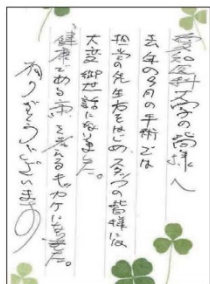 の皆様へ
去年の8月の手術では
担当の先生方をはじめ、スタッフの皆様には
大変御世話になりました。
“健康である事”を考えるキッカケになりました。
有りがとうございます